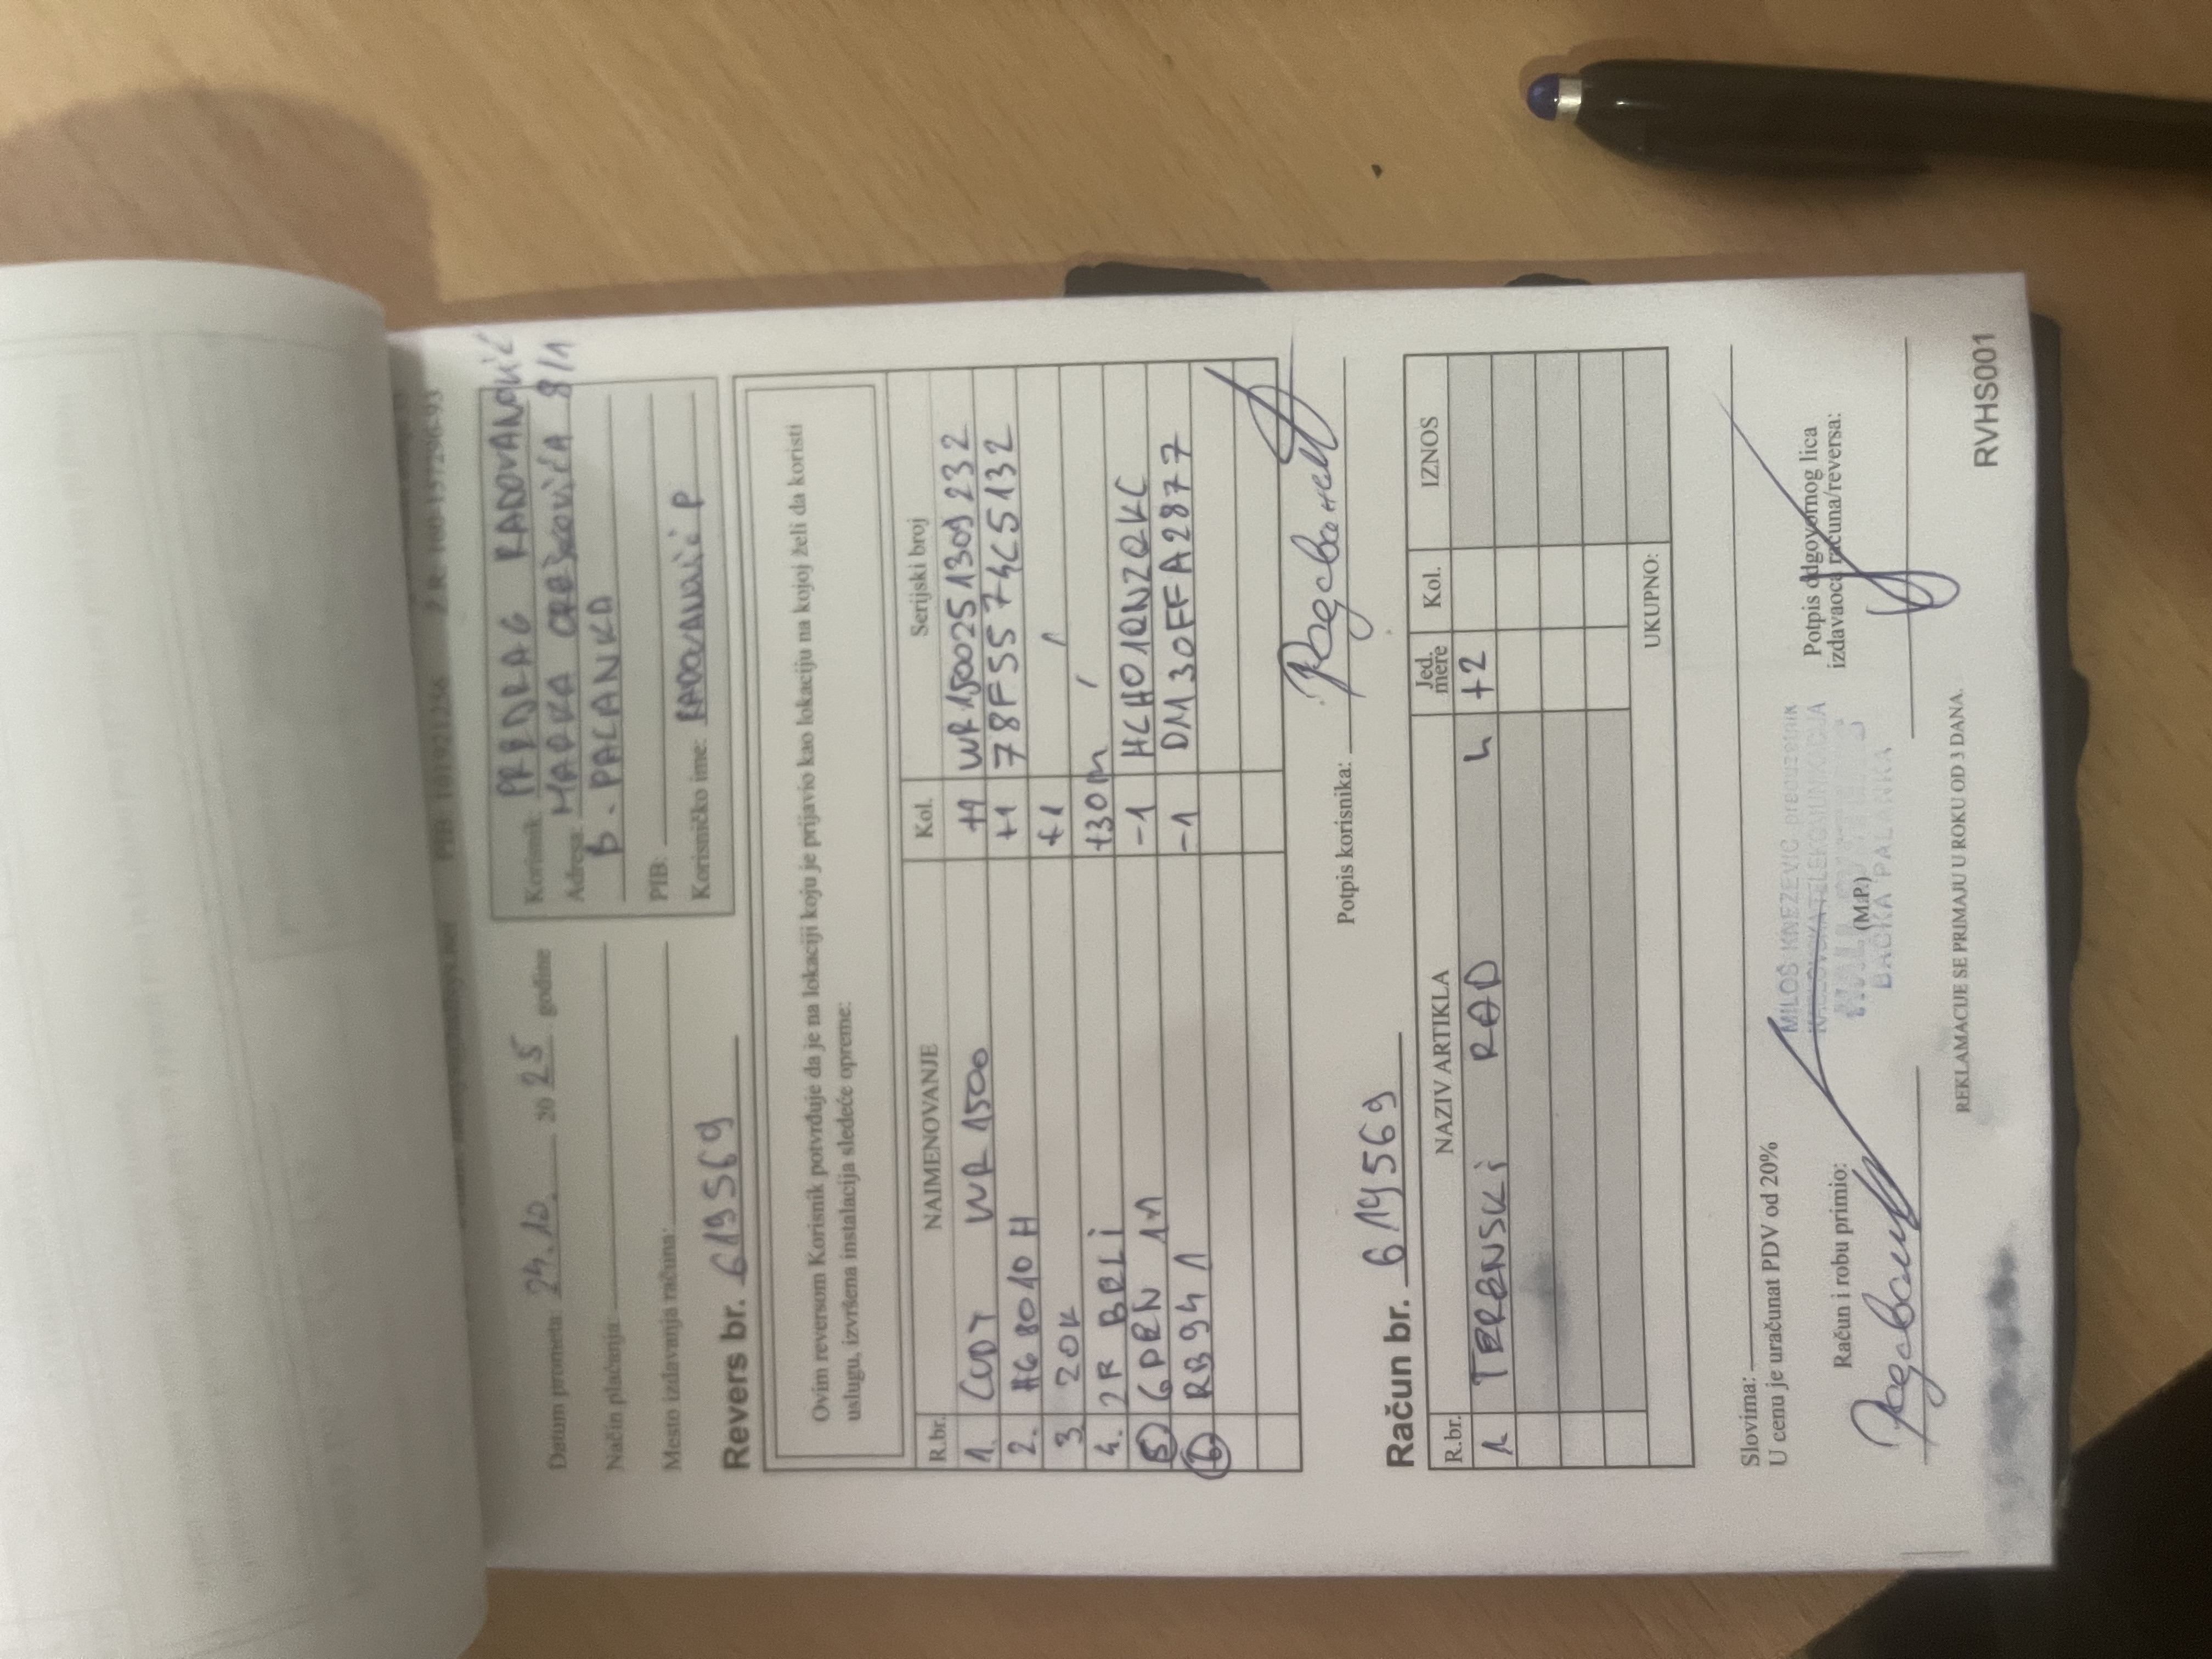 Datum prometa: 24.10. 2025 godine
Način plaćanja
Mesto izdavanja računa:
Korisnik: PREDRAG RADOVANOVIĆ
Adresa: MARKA 8/1
B. PALANKA
PIB:
Korisničko ime: RADOVANOVIĆ P
Revers br. 619569
Ovim reversom Korisnik potvrđuje da je na lokaciji koju je prijavio kao lokaciju na kojoj želi da koristi
uslugu, izvršena instalacija sledeće opreme:
R.br. NAIMENOVANJE Kol. Serijski broj
1. CUDY WR 1500 +1 WR1500251309232
2. HG8010H +1 78F55574C5132
3 20K +1 /
4. 2F BELI +30m /
5 GPEN 11 -1 HCH01QNZQKC
6 RB941 -1 DM30FFA2877
Potpis korisnika:
Račun br. 619569
R.br. NAZIV ARTIKLA Jed. mere Kol. IZNOS
1 TERENSKI RAD h +2
UKUPNO:
Slovima:
U cenu je uračunat PDV od 20%
Račun i robu primio:
MILOŠ KNEŽEVIĆ
(M.P.)
BAČKA PALANKA
Potpis odgovornog lica
izdavaoca računa/reversa:
REKLAMACIJE SE PRIMAJU U ROKU OD 3 DANA.
RVHS001